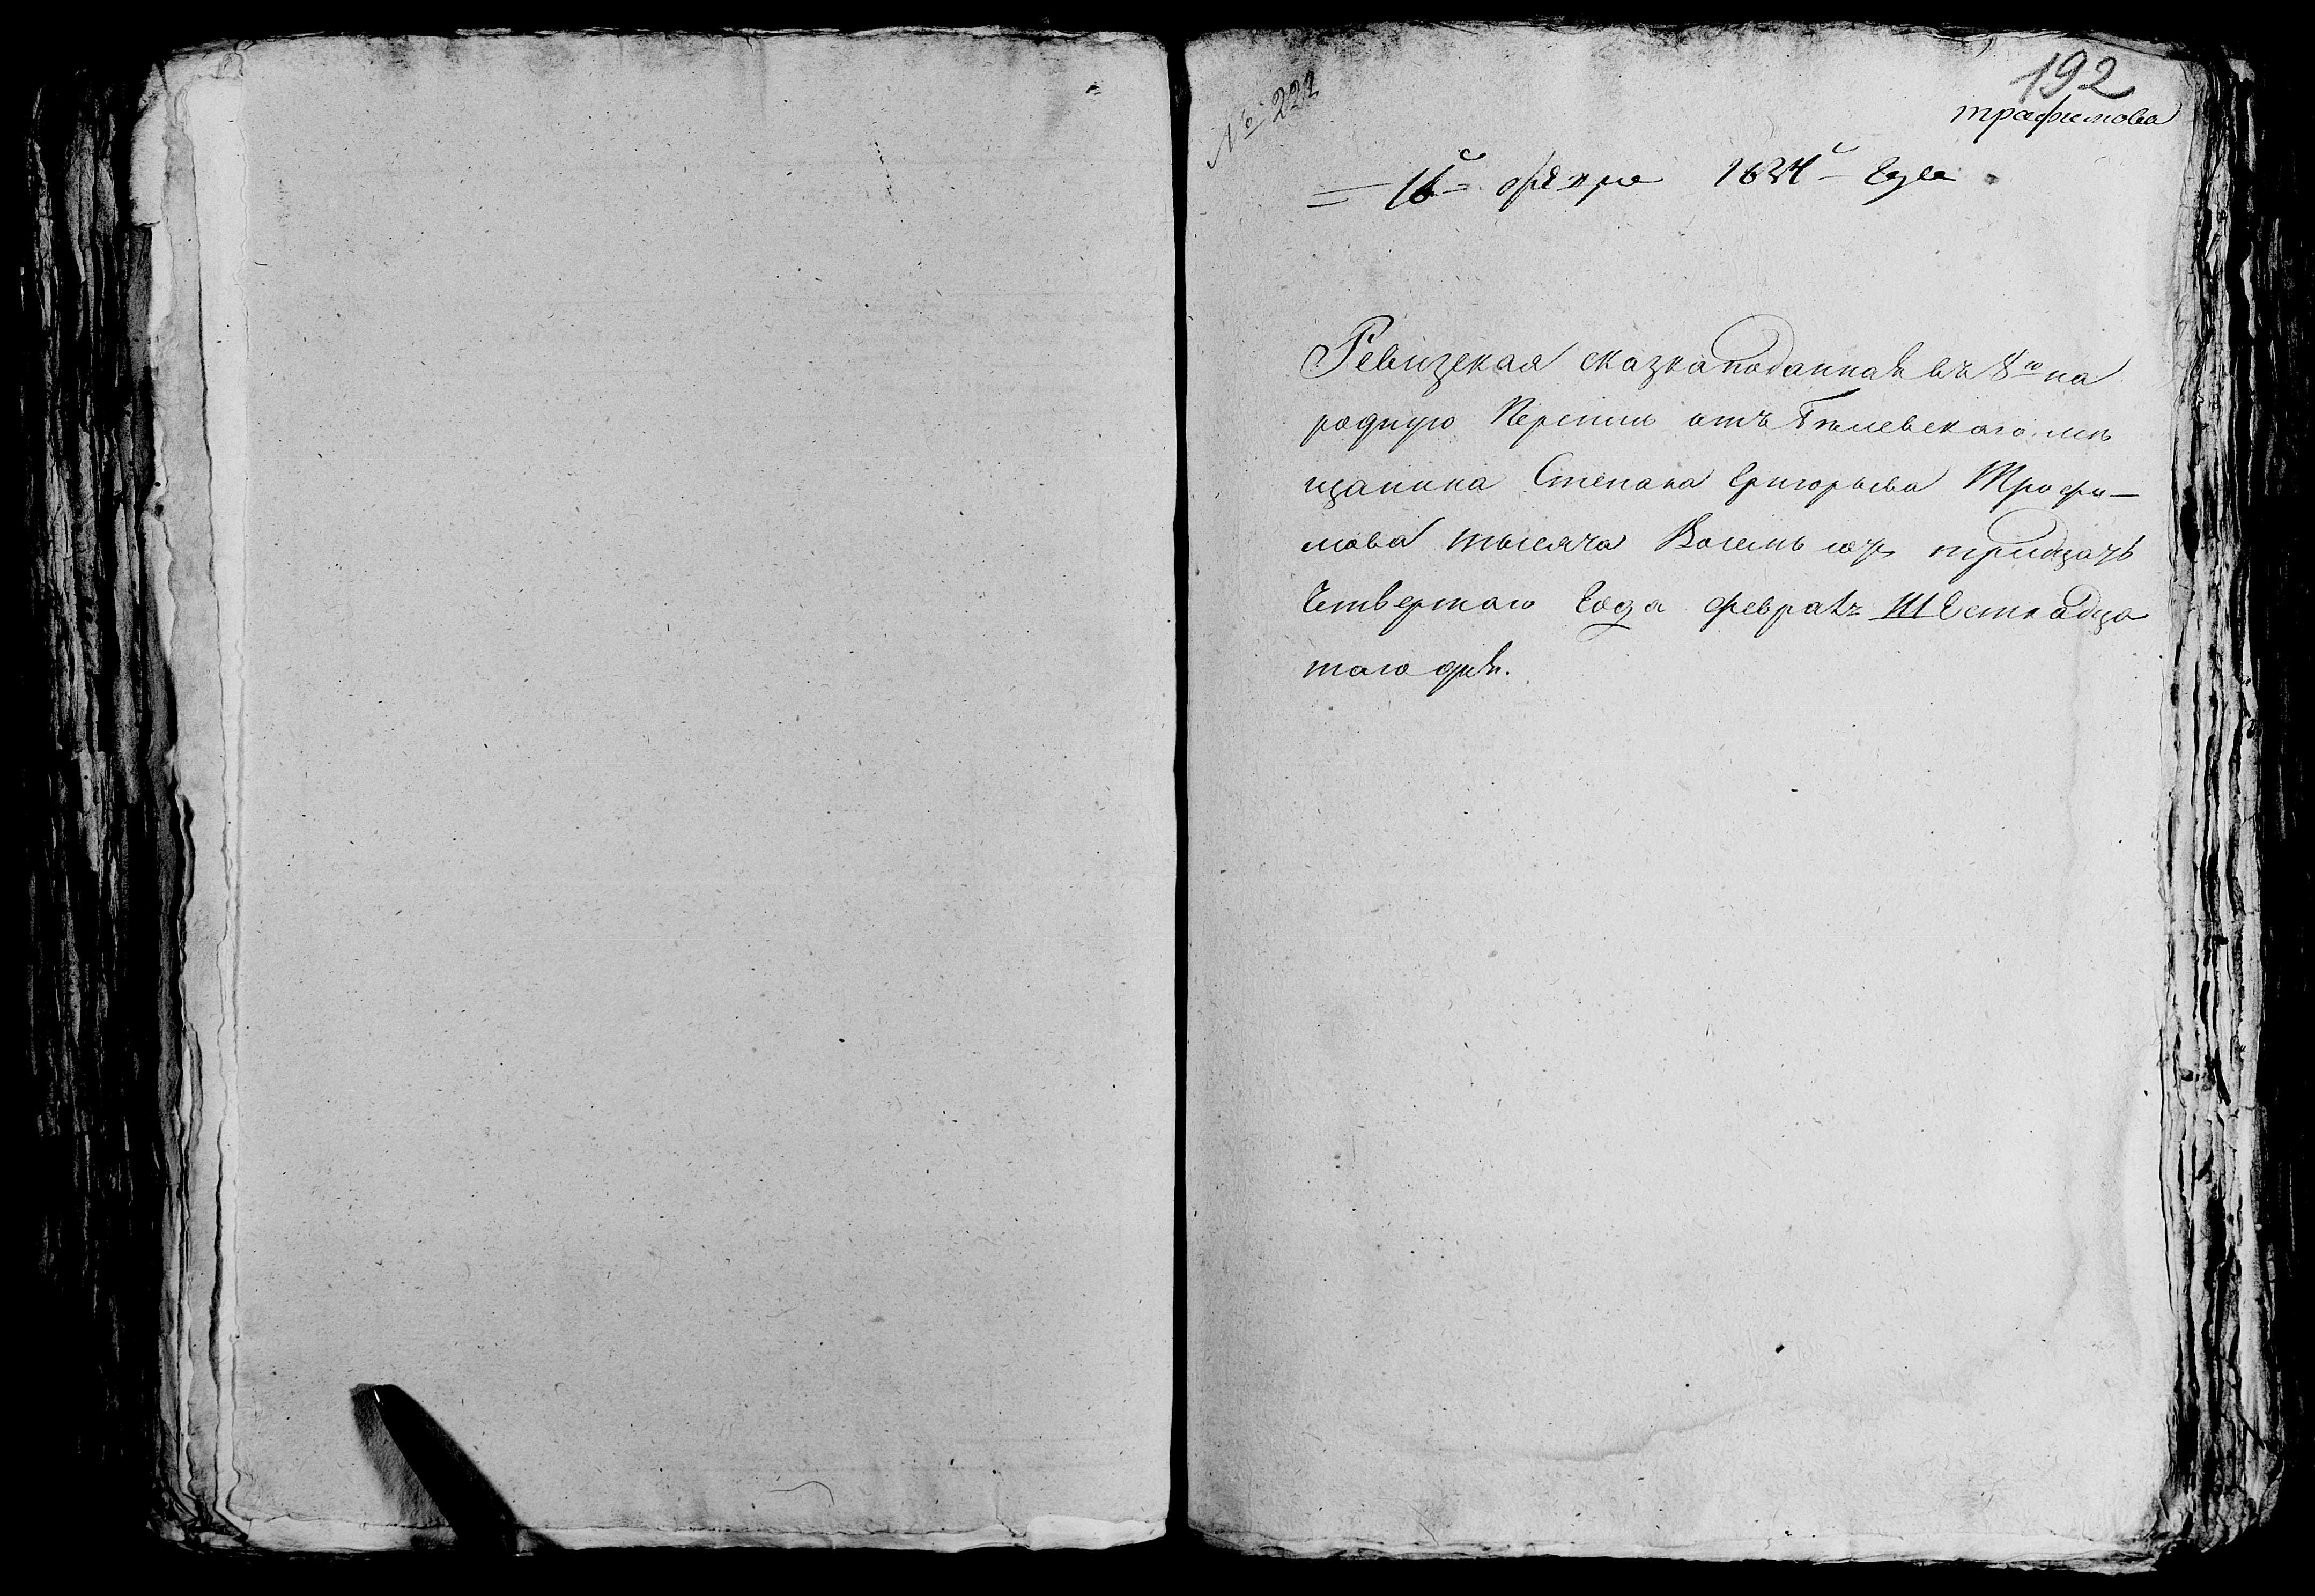 № 222
192
трафимова
16 февра 1834 года
Ревизская сказка поданная въ 8ю на
родную Перепись отъ Белевскаго мѣ
щанина Степана Григорьева Трофи—
мова тысяча Восемь сотъ тридцать
Четвертаго Года февраля Шестнадца
таго дня.